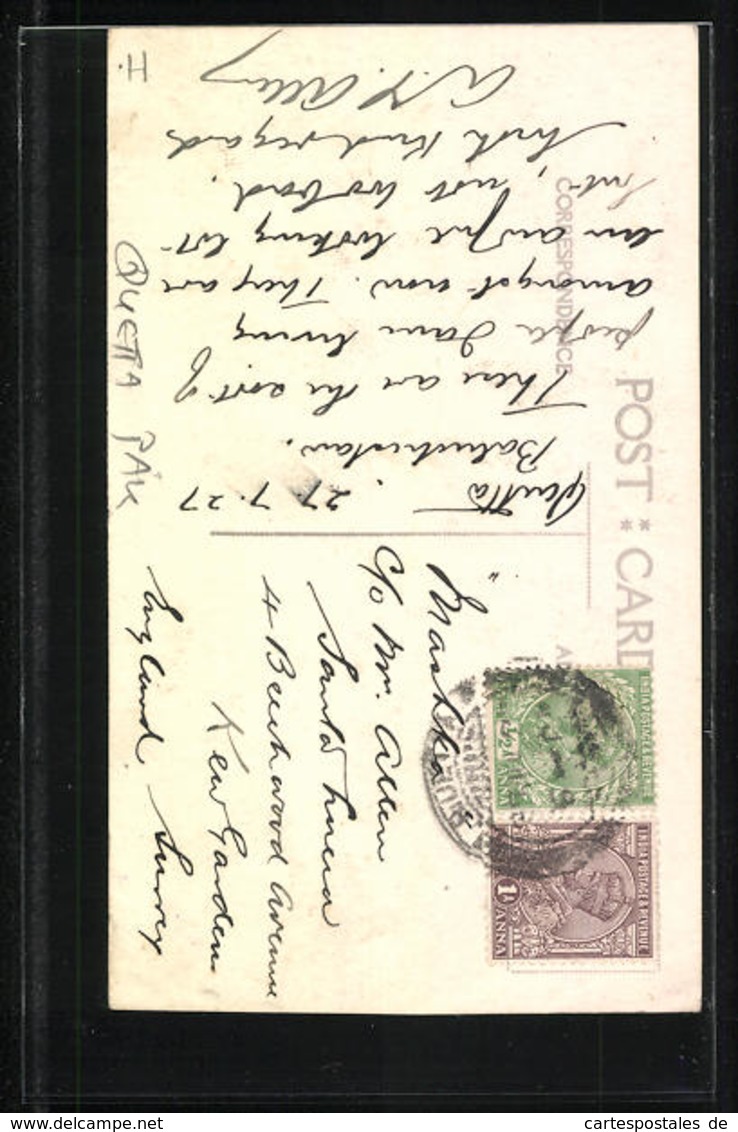 POST CARD
CORRESPONDENCE
Quetta 27.7.27
Baluchistan.
There are the sort of
people I am living
amongst now. They are
an awful looking lot
but, not too bad.
With kind regards
H.
QUETTA PAK
"Martha"
C/o Mr. Allen
Santa Lucia
4 Beechwood Avenue
Kew Gardens
Surrey
England
INDIA POSTAGE & REVENUE
½ ANNA
INDIA POSTAGE & REVENUE
1A ANNA
delcampe.net
cartespostales de